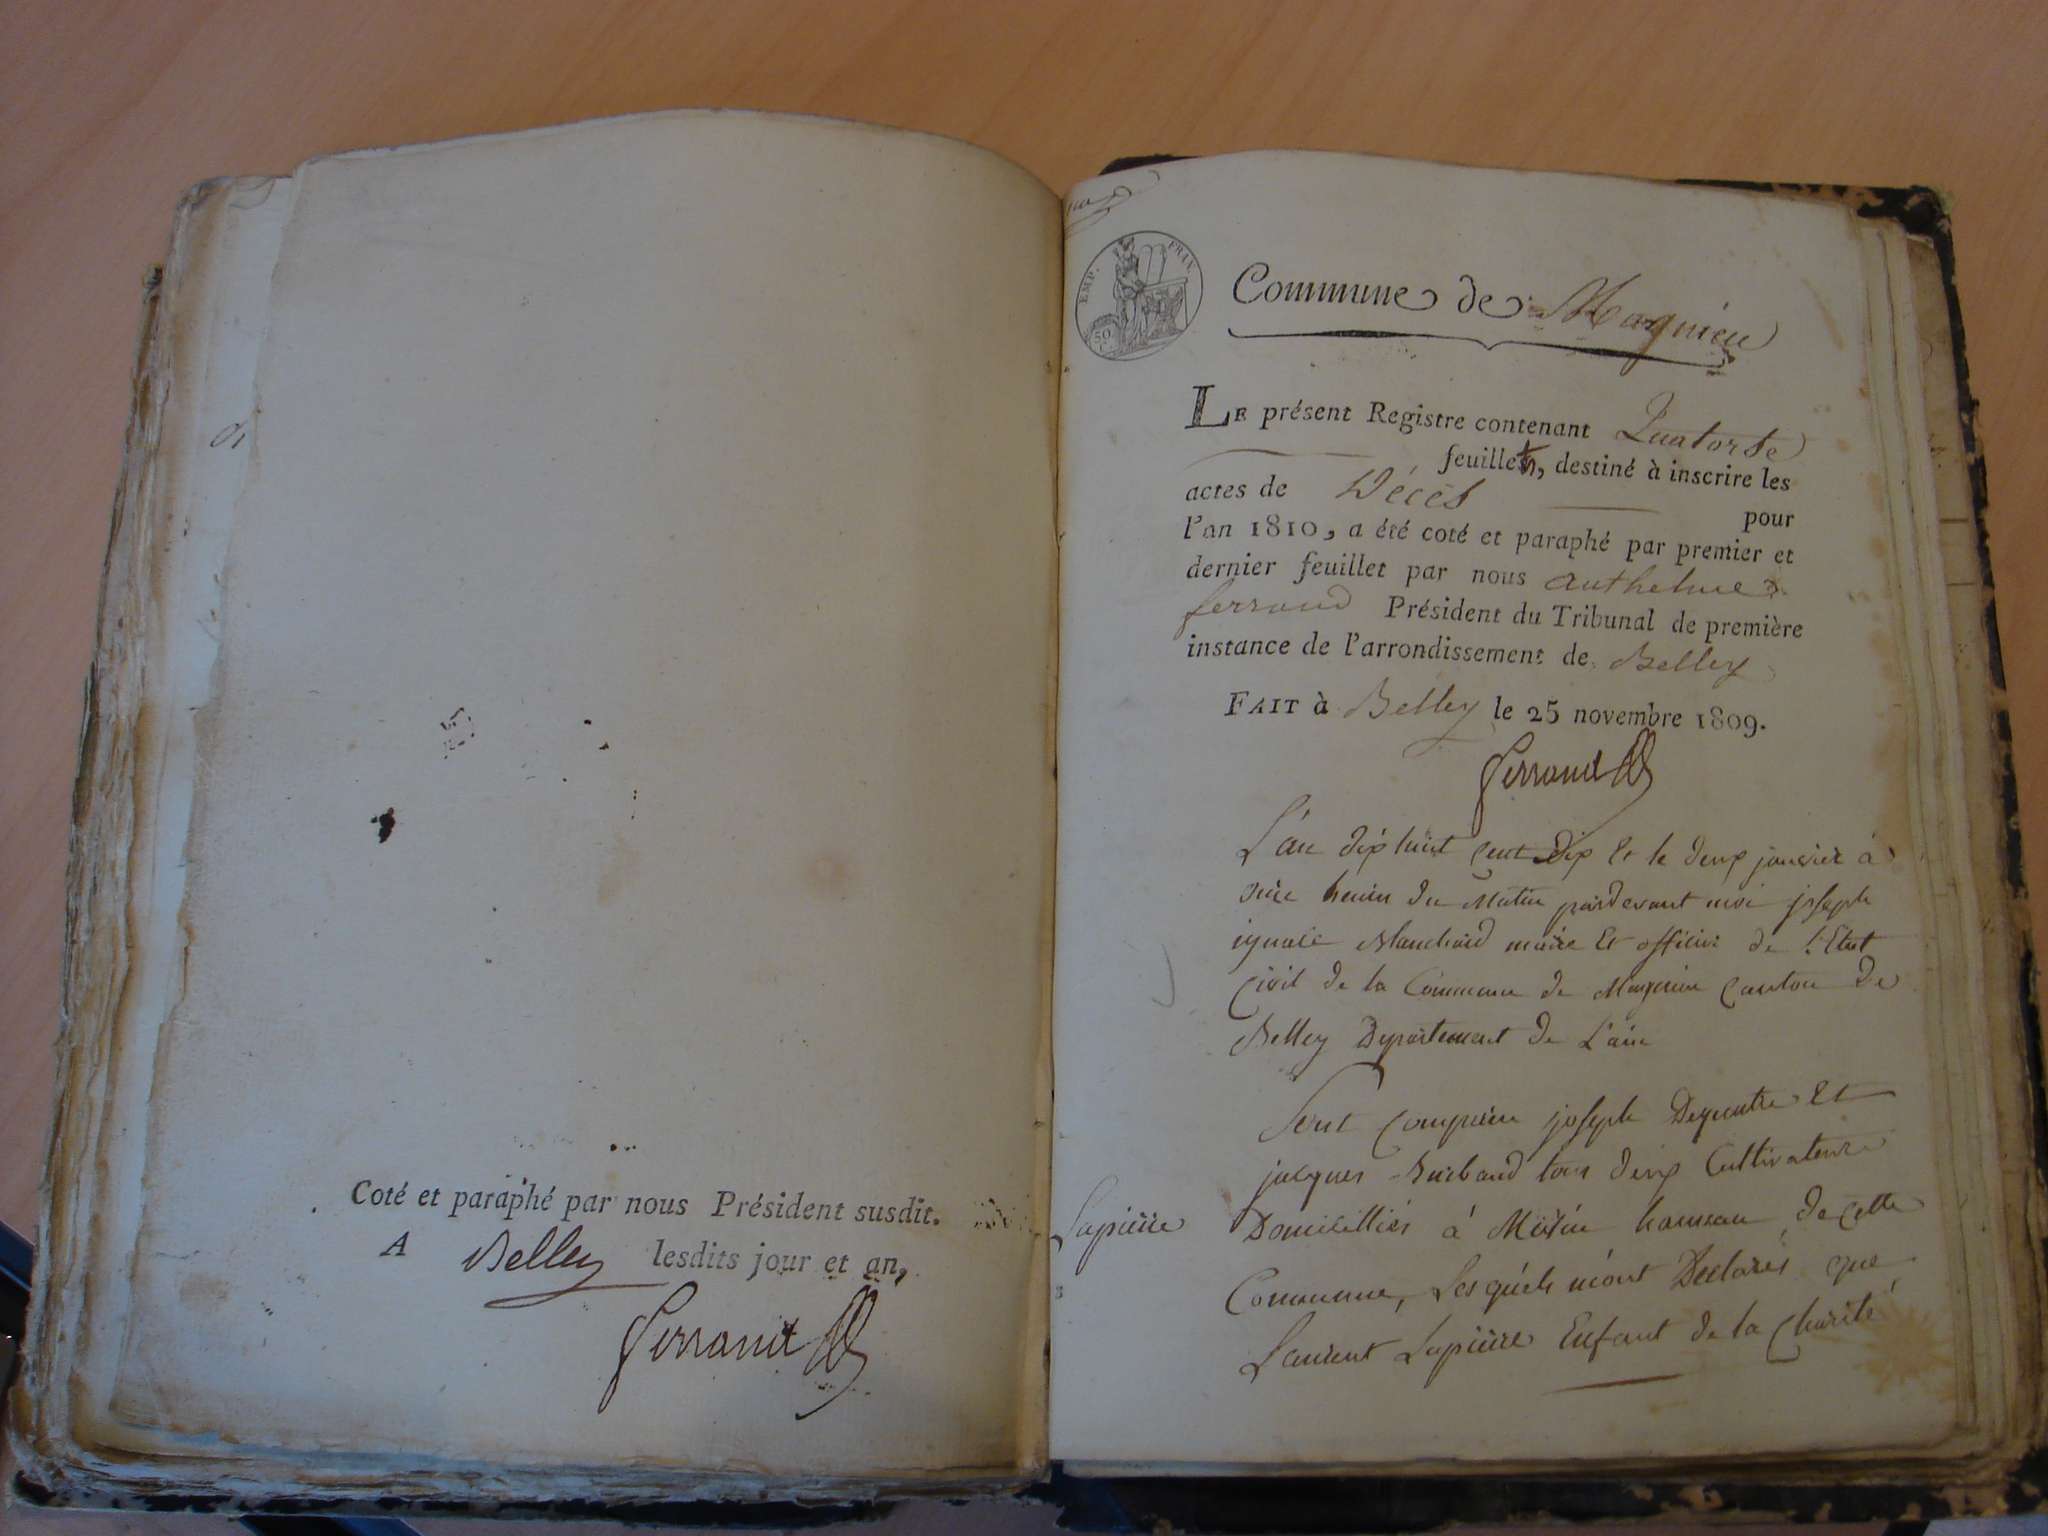 Coté et paraphé par nous Président susdit.
A Belley lesdits jour et an,
Ferrand
EMP. FRAN.
50
C.
Commune de Magnieu
LE présent Registre contenant Quatorse
feuillets, destiné à inscrire les
actes de Décès pour
l'an 1810, a été coté et paraphé par premier et
dernier feuillet par nous anthelme
ferrand Président du Tribunal de première
instance de l'arrondissement de Belley
FAIT à Belley le 25 novembre 1809.
Ferrand
L'an dix huit cent Dix Et le deux janvier à
heures du Matin pardevant moi joseph
ignace Blanchard maire Et officier de l'Etat
Civil de la Commune de Magnieu Canton De
Belley Departement de L'ain
Sont Comparu joseph Et
jacques tous deux Cultivateurs
Lapierre
Domicilliés à hameau de cette
Commune, Lesquels m'ont Declarés que
Laurent Lapierre Enfant de la Charité